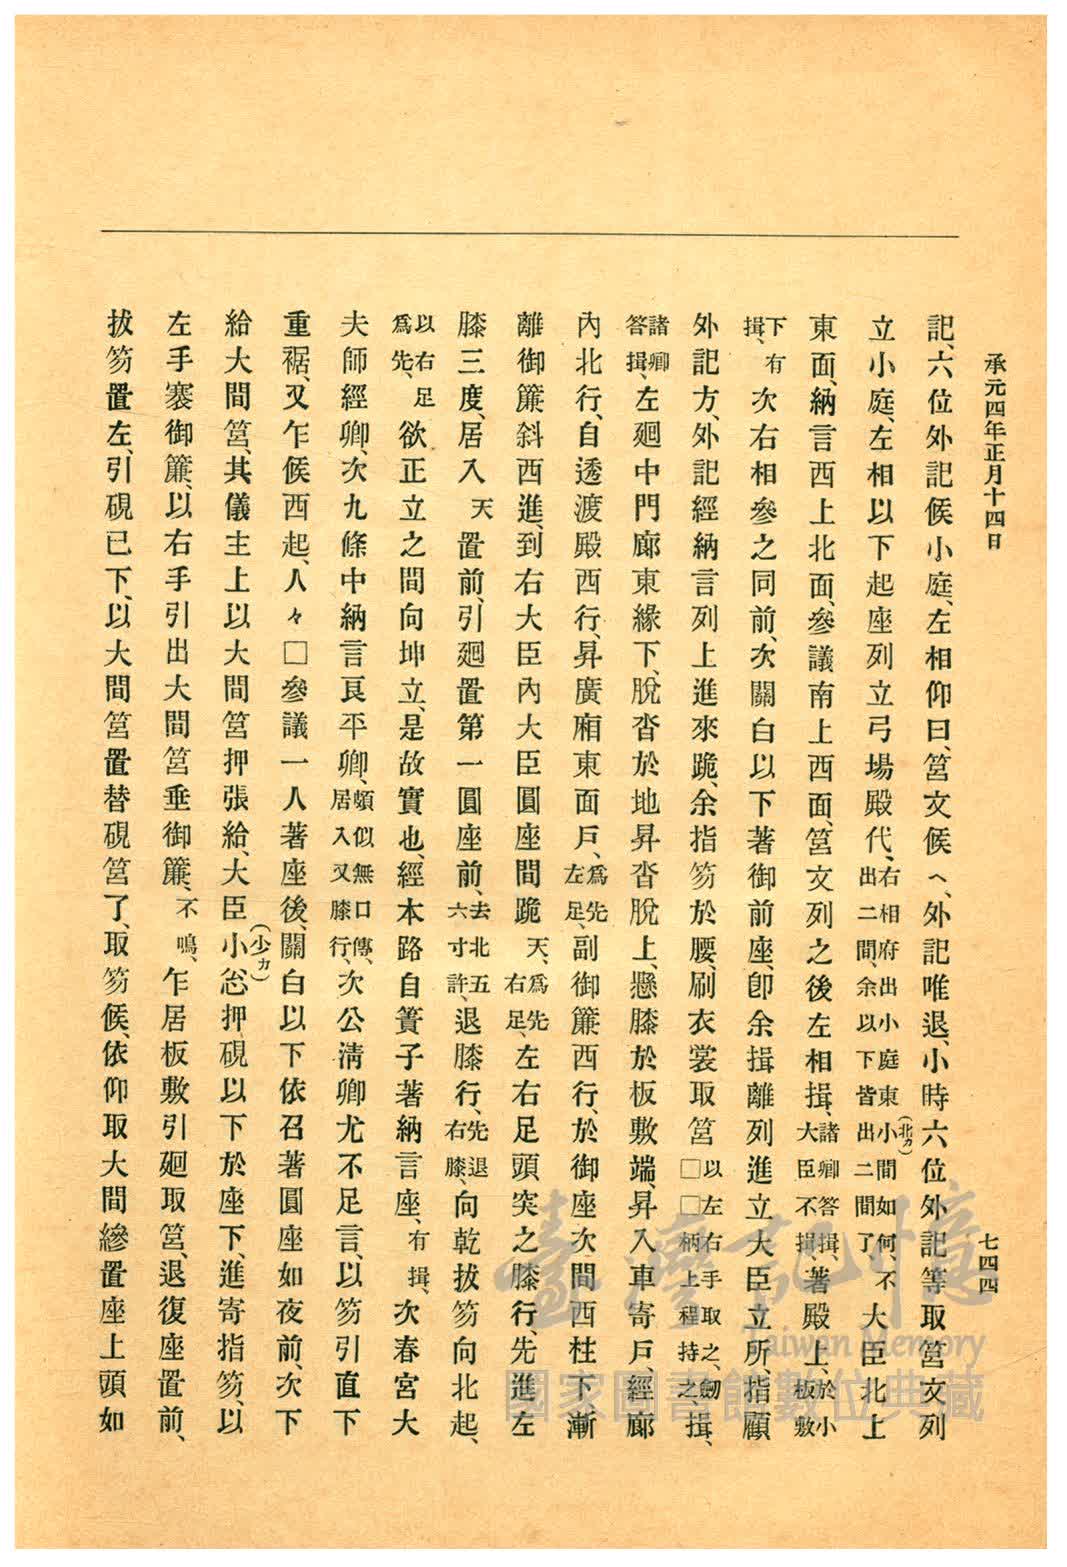 承元四年正月十四日
七四四
記、六位外記候小庭、左相仰曰、筥文候ヘ、外記唯退、小時六位外記等取筥文列
立小庭、左相以下起座列立弓場殿代、右相府出小庭東小(北カ)間如何、不出二間、余以下皆出二間了、大臣北上
東面、納言西上北面、參議南上西面、筥文列之後左相揖、諸卿答揖、大臣不揖、著殿上、於小板敷
下有揖、次右相參之同前、次關白以下著御前座、卽余揖離列進立大臣立所、指顧
外記方、外記經納言列上進來跪、余指笏於腰、刷衣裳取筥以左右手取之、劒□□柄上程持之、揖、
諸卿答揖、左廻中門廊東緣下、脫沓於地昇沓脫上、懸膝於板敷端、昇入車寄戶、經廊
內北行、自透渡殿西行、昇廣廂東面戶、爲先左足、副御簾西行、於御座次間西柱下漸
離御簾斜西進、到右大臣內大臣圓座間跪天、爲先右足、左右足頭突之膝行、先進左
膝三度、居入天置前、引廻置第一圓座前、去北五六寸許、退膝行、先退右膝、向乾拔笏向北起、
以右足爲先、欲正立之間向坤立、是故實也、經本路自簀子著納言座、有揖、次春宮大
夫師經卿、次九條中納言良平卿、頗似無口傳、居入又膝行、次公淸卿尤不足言、以笏引直下
重裾、又乍候西起、人々□參議一人著座後、關白以下依召著圓座如夜前、次下
給大間筥、其儀主上以大間筥押張給、大臣小(少カ)忩押硯以下於座下、進寄指笏、以
左手褰御簾、以右手引出大間筥垂御簾、不鳴、乍居板敷引廻取筥、退復座置前、
拔笏置左、引硯已下、以大間筥置替硯筥了、取笏候、依仰取大間縿置座上頭如
臺灣記憶
Taiwan Memory
國家圖書館數位典藏